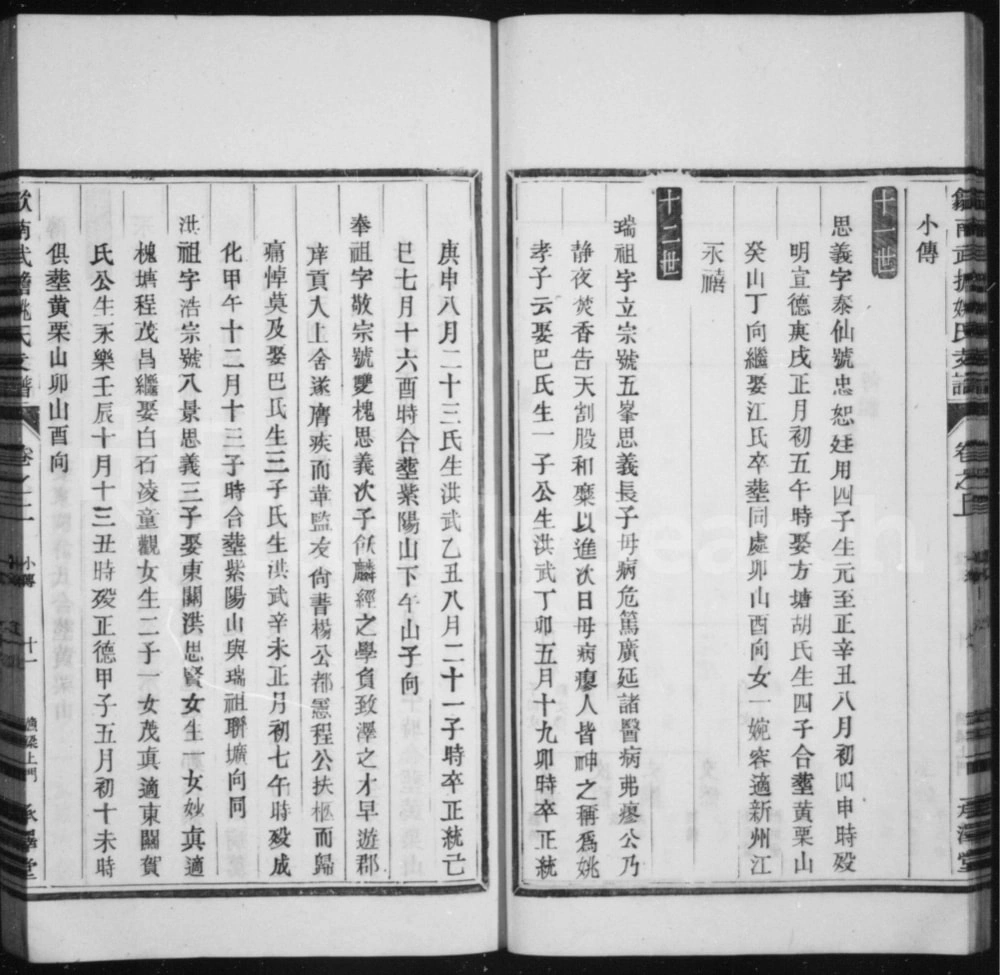 小傳
十一世
思義字泰仙號忠恕廷用四子生元至正辛丑八月初四申時歿
明宣德庚戌正月初五午時娶方塘胡氏生四子合塟黃栗山
癸山丁向繼娶江氏卒塟同處卯山酉向女一婉容適新州江
永禧
十二世
瑞祖字立宗號五峯思義長子母病危篤廣延諸醫病弗瘳公乃
静夜焚香告天割股和糜以進次日母病瘳人皆呻之稱爲姚
孝子云娶巴氏生一子公生洪武丁卯五月十九卯時卒正統
庚申八月二十三氏生洪武乙丑八月二十一子時卒正統己
巳七月十六酉時合塟紫陽山下午山子向
奉祖字敬宗號雙槐思義次子飫麟經之學負致澤之才早遊郡
庠貢入上舍遂膺疾而革監友尚書楊公都憲程公扶柩而歸
痛悼莫及娶巴氏生三子氏生洪武辛未正月初七午時歿成
化甲午十二月十三子時合塟紫陽山與瑞祖聯壙向同
洪祖字浩宗號八景思義三子娶東關洪思賢女生一女妙真適
槐塘程茂昌繼娶白石凌童觀女生二子一女茂真適東關賀
氏公生永樂壬辰十月十三丑時歿正德甲子五月初十未時
俱塟黃栗山卯山酉向
卷之二
小傳
十一
承澤堂